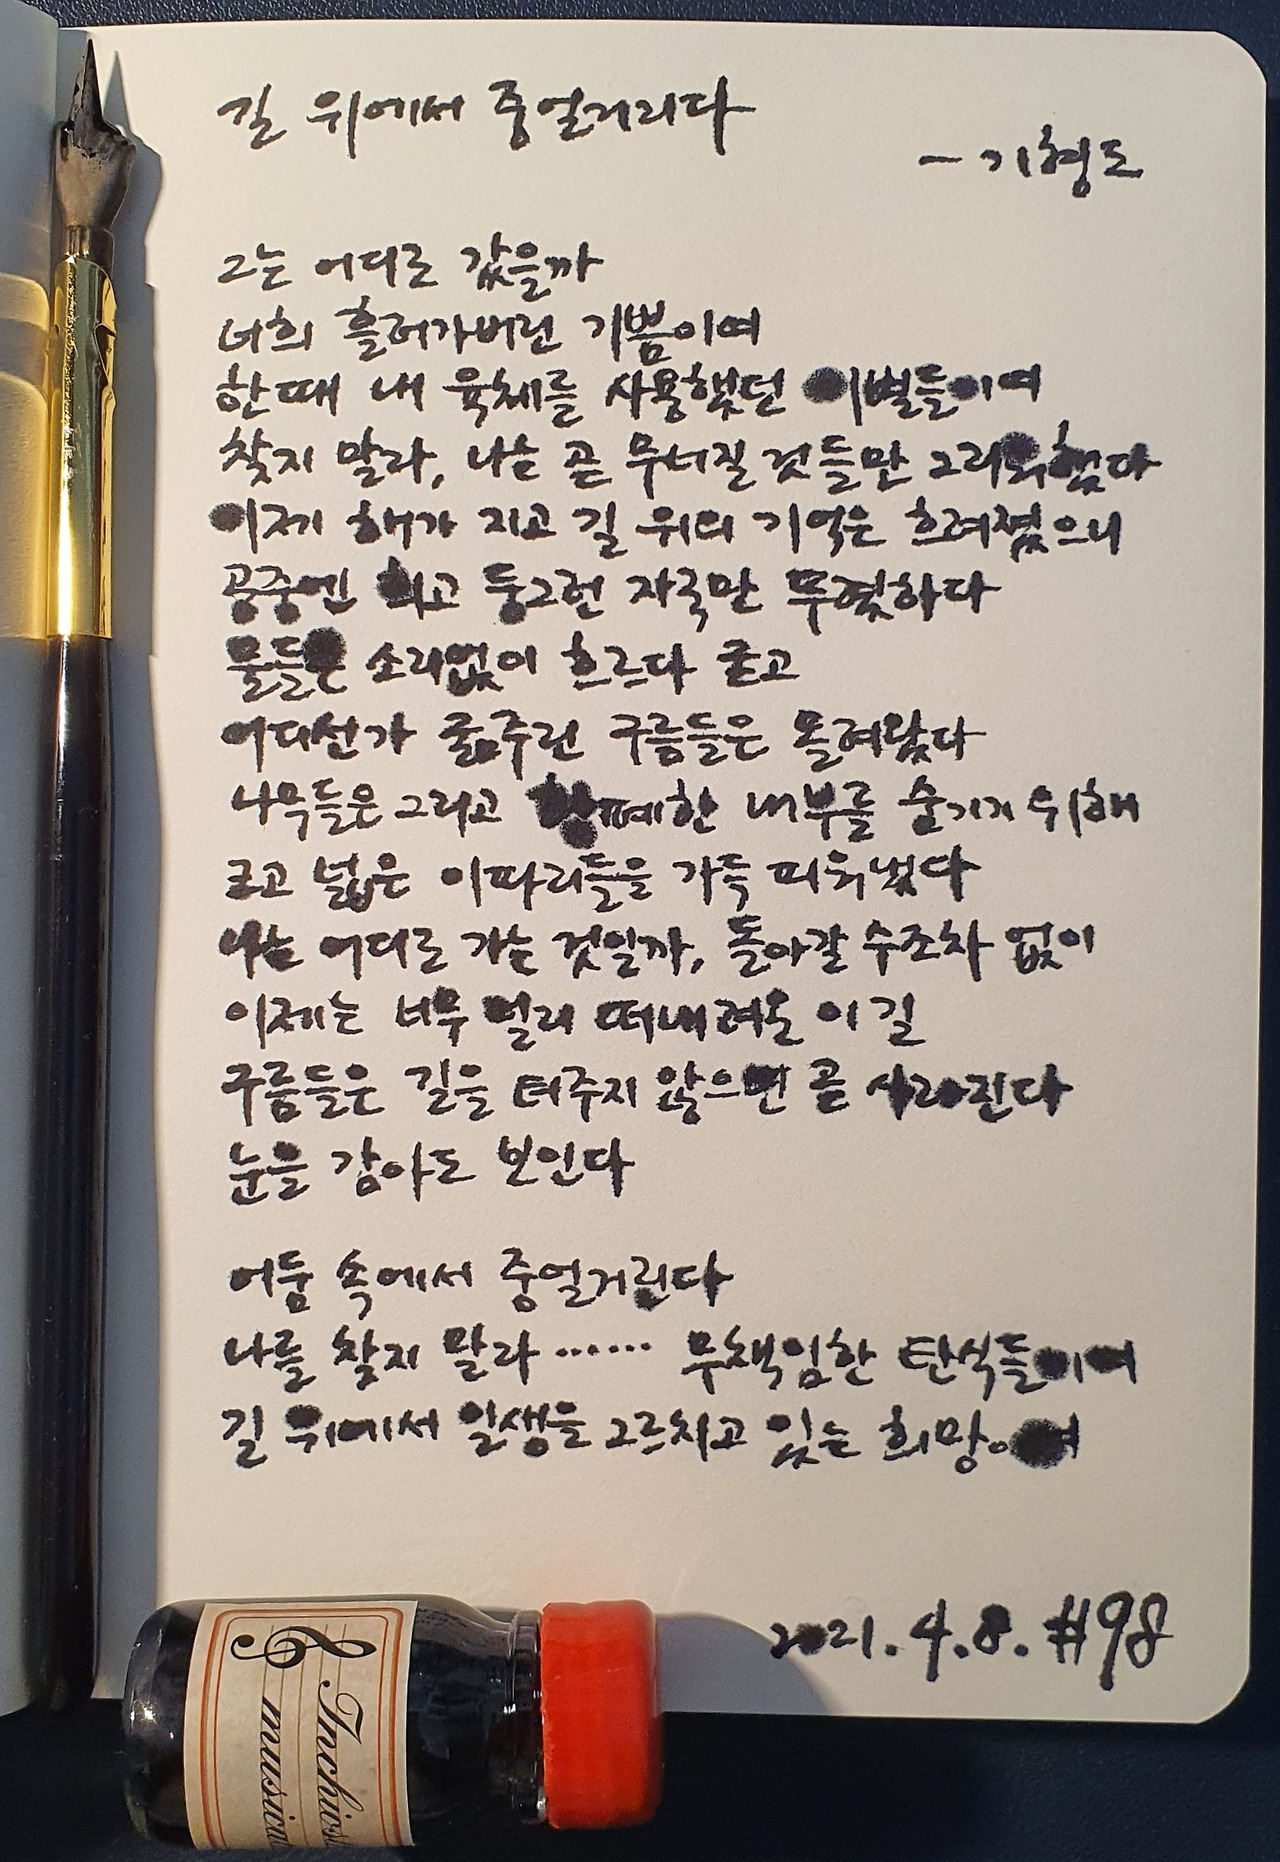 길 위에서 중얼거리다
- 기형도
그는 어디로 갔을까
너희 흘러가버린 기쁨이여
한때 내 육체를 사용했던 이별들이여
찾지 말라, 나는 곧 무너질 것들만 그리워했다
이제 해가 지고 길 위의 기억은 흐려졌으니
공중엔 희고 둥그런 자국만 뚜렷하다
물들은 소리없이 흐르다 굳고
어디선가 굶주린 구름들은 몰려왔다
나무들은 그리고 황폐한 내부를 숨기기 위해
크고 넓은 이파리들을 가득 피워냈다
나는 어디로 가는 것일까, 돌아갈 수조차 없이
이제는 너무 멀리 떠내려온 이 길
구름들은 길을 터주지 않으면 곧 사라진다
눈을 감아도 보인다
어둠 속에서 중얼거린다
나를 찾지 말라…… 무책임한 탄식들이여
길 위에서 일생을 그르치고 있는 희망이여
2021. 4. 8. #98
musical